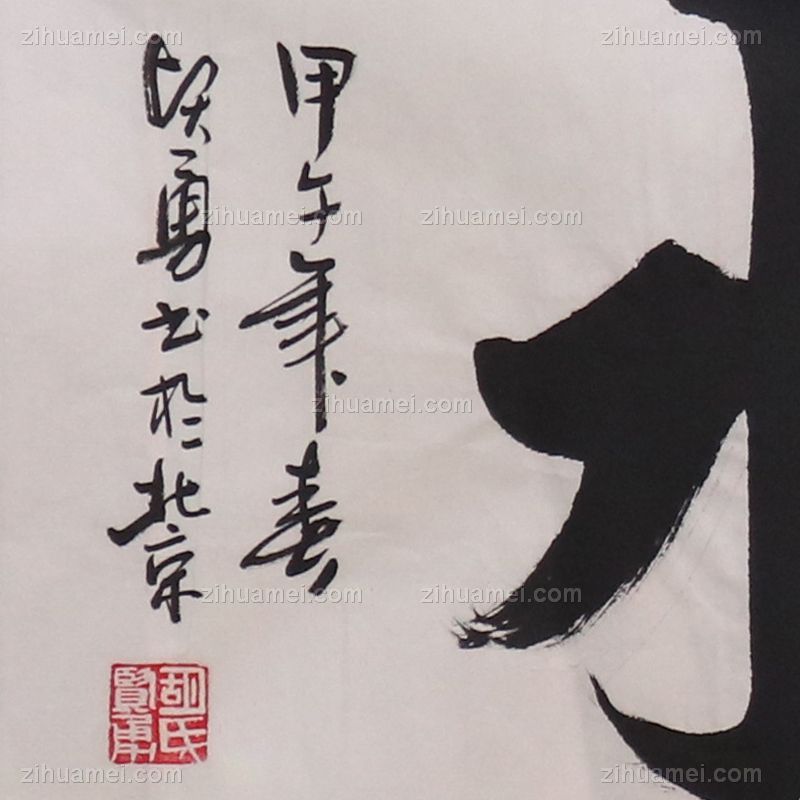 zihuamei.com zihuamei.com
甲午年春
贤勇书於北京
胡氏
賢勇
zihuamei.com zihuamei.com
zihuamei.com
zihuamei.com zihuamei.com
zihuamei.com zihuamei.com